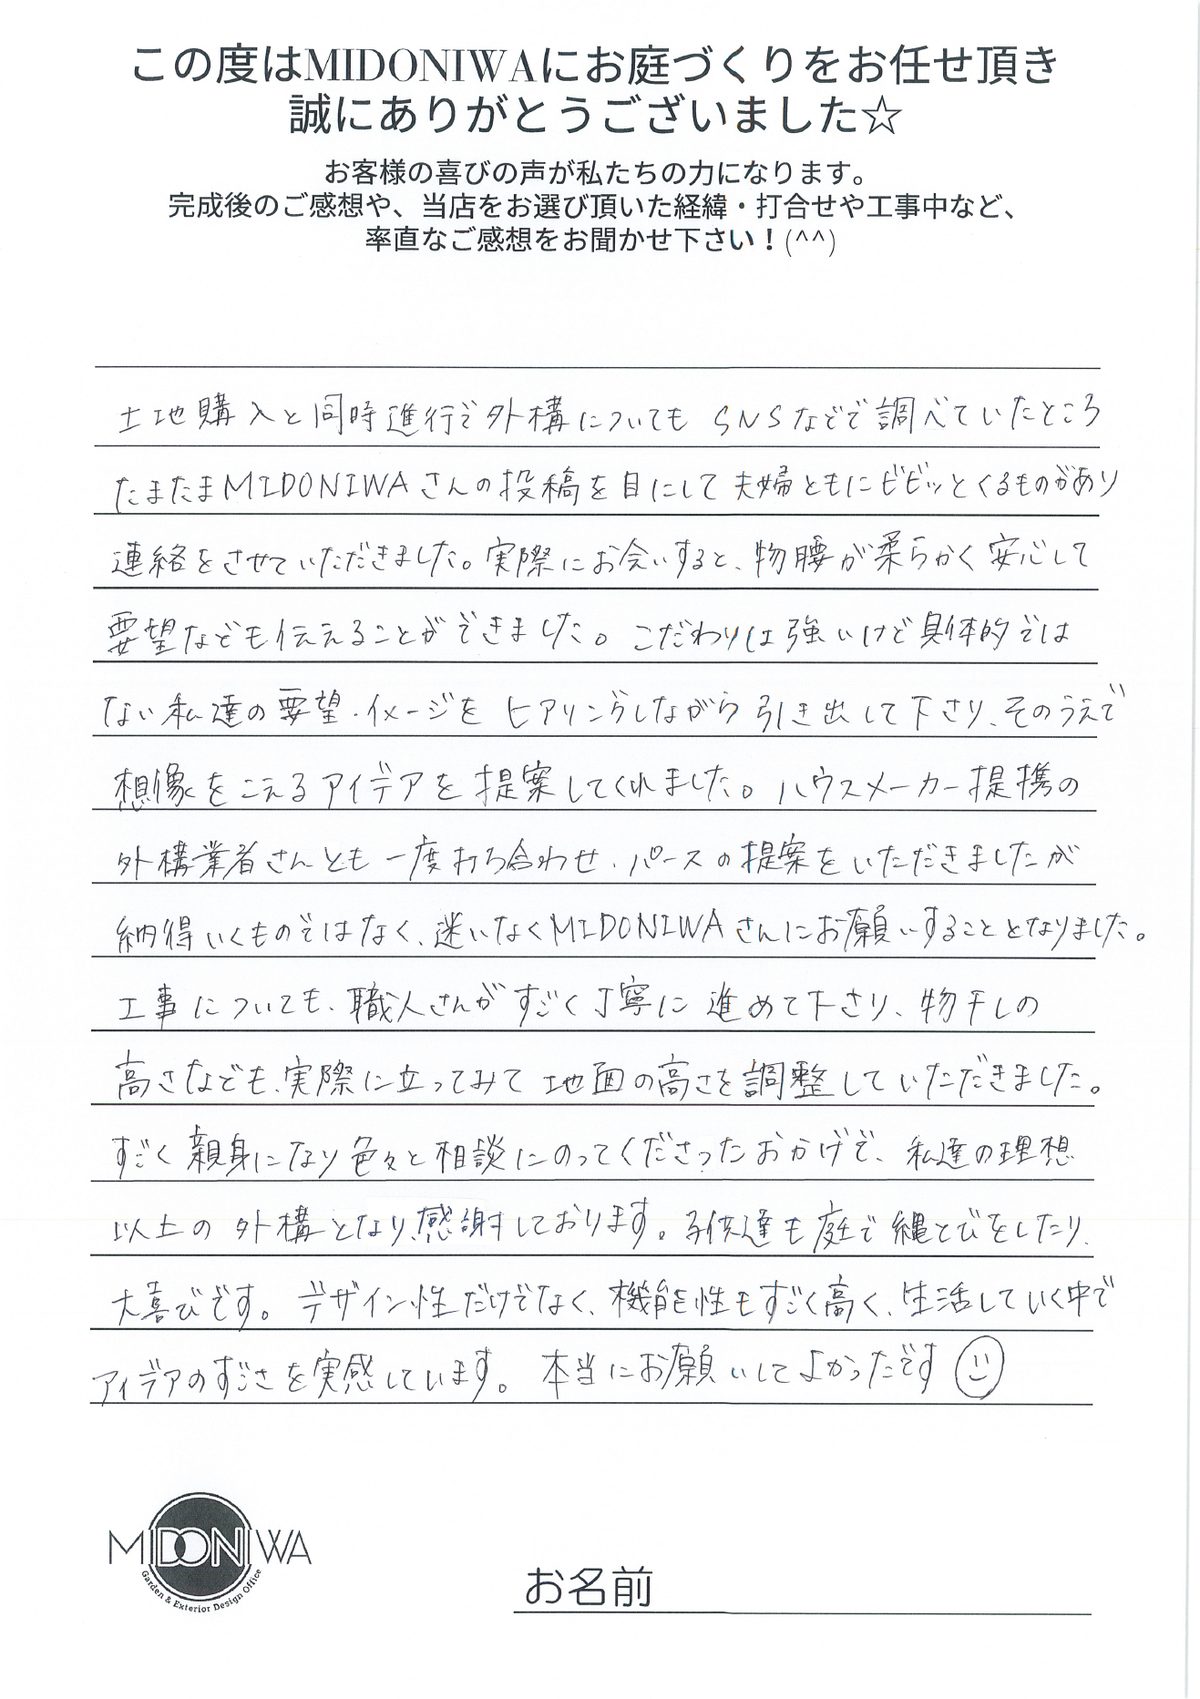 この度はMIDONIWAにお庭づくりをお任せ頂き
誠にありがとうございました☆
お客様の喜びの声が私たちの力になります。
完成後のご感想や、当店をお選び頂いた経緯・打合せや工事中など、
率直なご感想をお聞かせ下さい！(^^)
土地購入と同時進行で外構についても SNSなどで調べていたところ
たまたまMIDONIWAさんの投稿を目にして夫婦ともにビビッとくるものがあり
連絡をさせていただきました。実際にお会いすると、物腰が柔らかく安心して
要望なども伝えることができました。こだわりは強いけど具体的では
ない私達の要望・イメージをヒアリングしながら引き出して下さり、そのうえで
想像をこえるアイデアを提案してくれました。ハウスメーカー提携の
外構業者さんとも一度打ち合わせ、パースの提案をいただきましたが
納得いくものではなく、迷いなくMIDONIWAさんにお願いすることとなりました。
工事についても、職人さんがすごく丁寧に進めて下さり、物干しの
高さなども、実際に立ってみて地面の高さを調整していただきました。
すごく親身になり色々と相談にのってくださったおかげで、私達の理想
以上の外構となり、感謝しております。子供達も庭で縄とびをしたり、
大喜びです。デザイン性だけでなく、機能性もすごく高く、生活していく中で
アイデアのすごさを実感しています。本当にお願いしてよかったです
MIDONIWA
Garden & Exterior Design Office
お名前